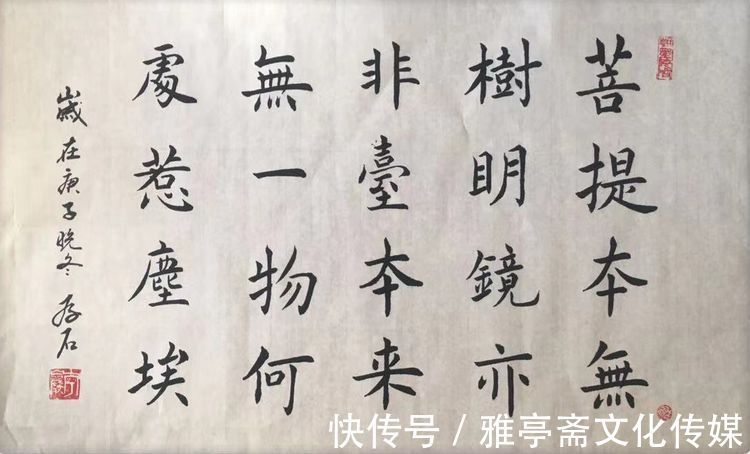 菩提夲無
樹明鏡亦
非臺夲来
無一物何
處惹塵埃
歲在庚子晚冬 存石
快传号 / 雅亭斋文化传媒